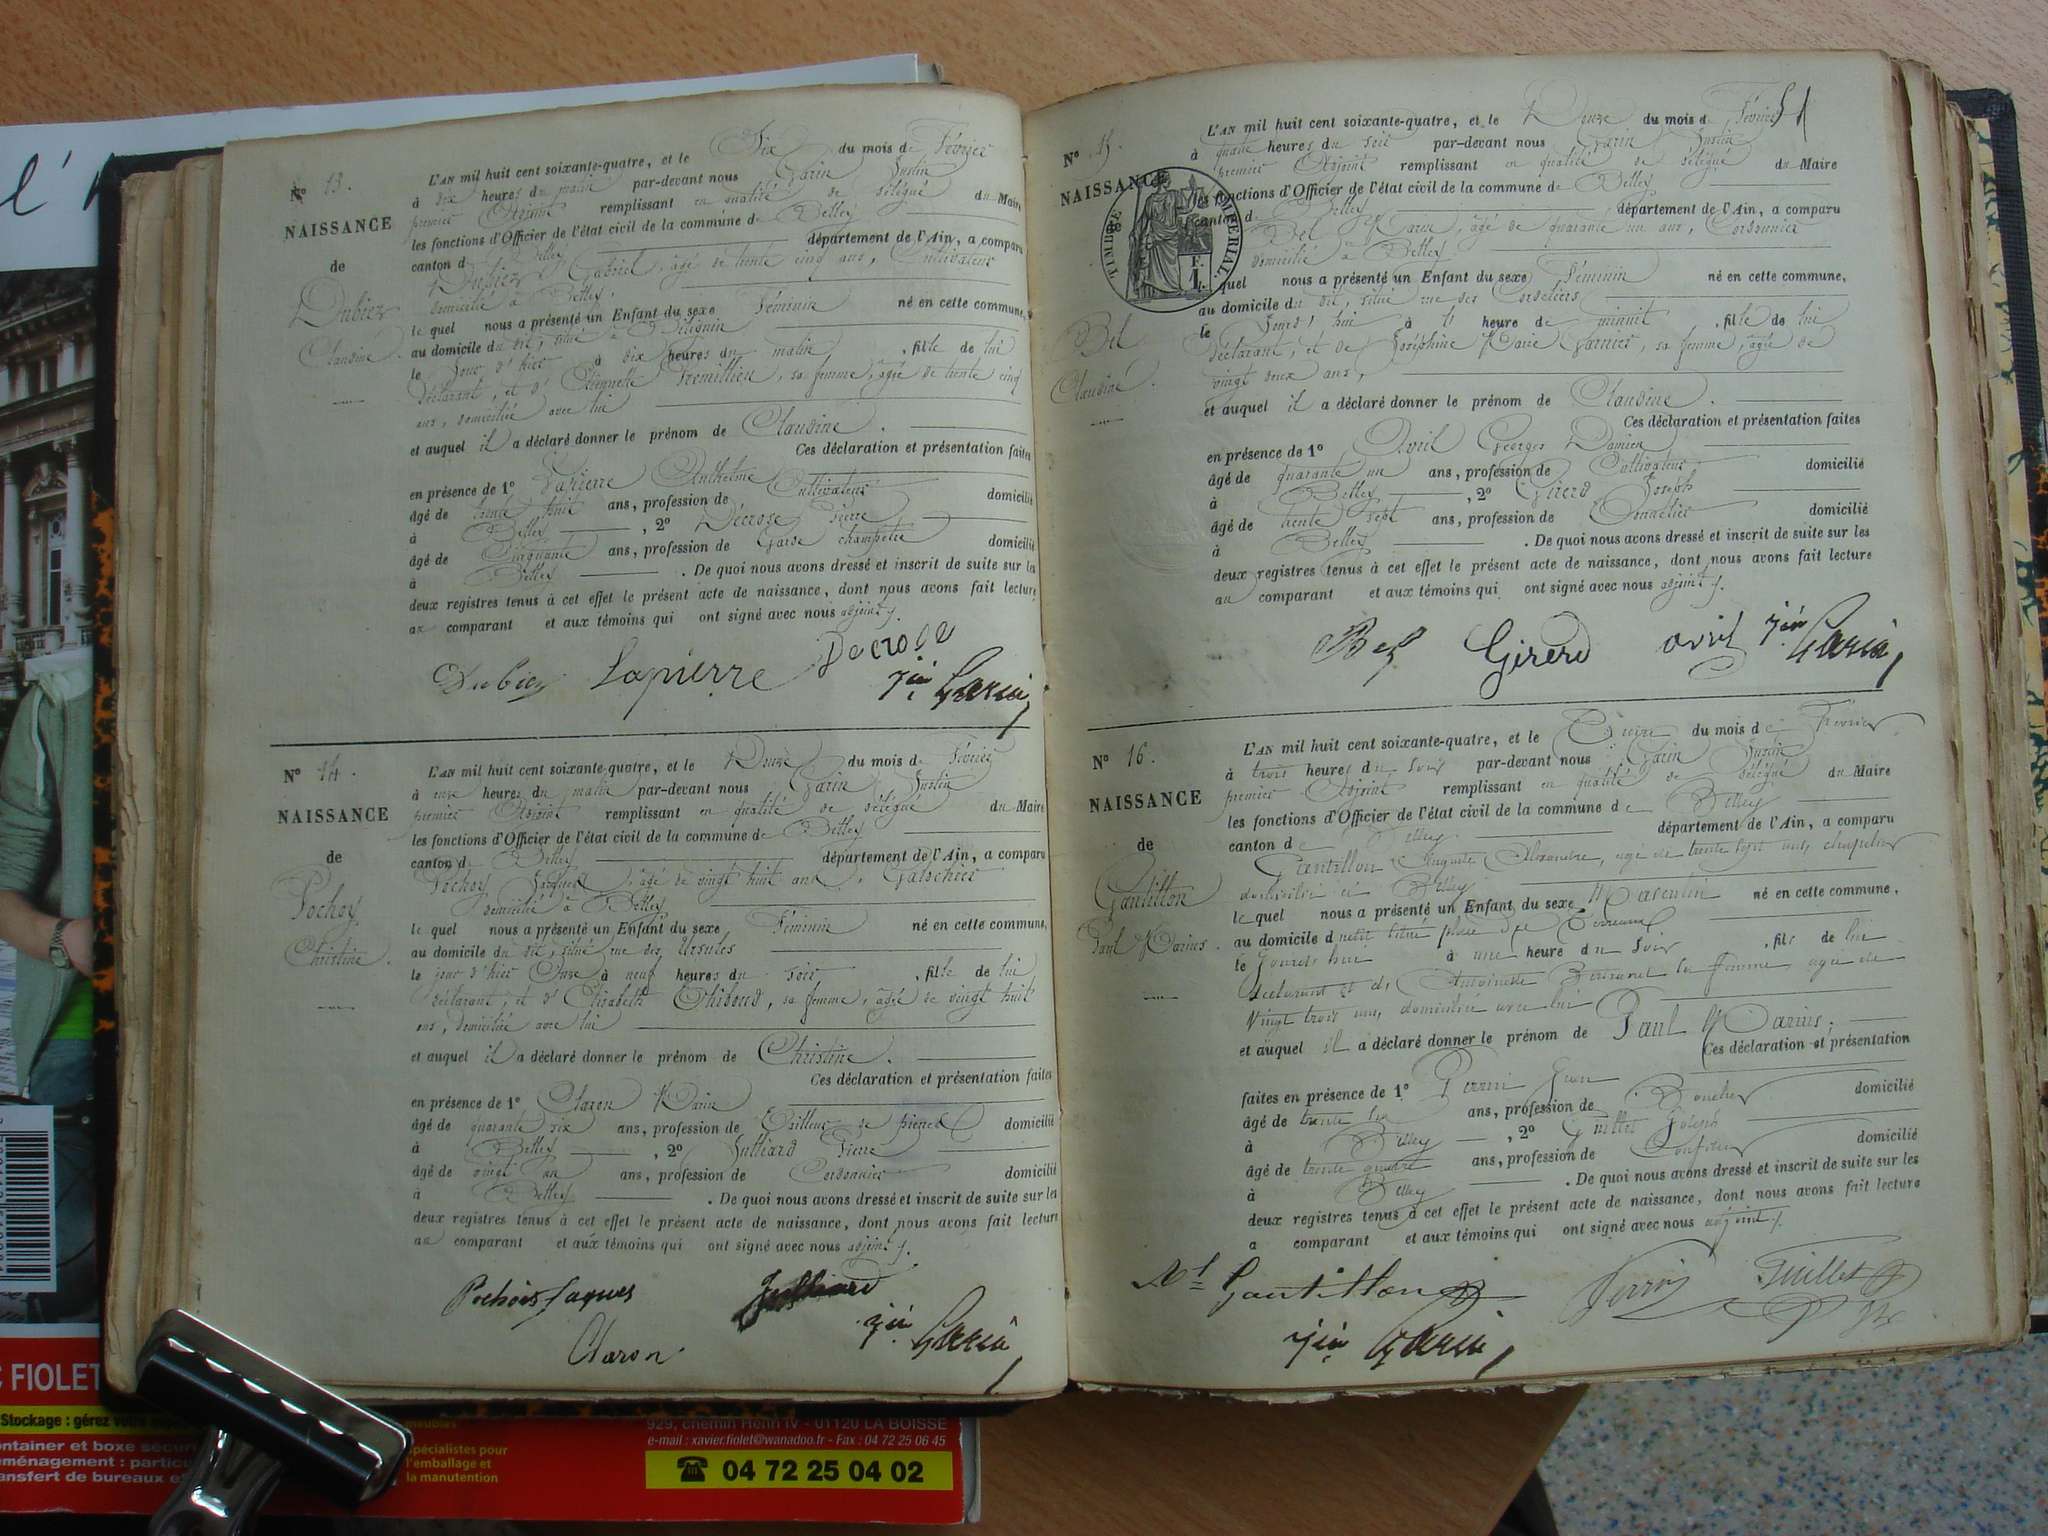 N° 13.
NAISSANCE
de
Dubiez
Claudine.
L'AN mil huit cent soixante-quatre, et le Dix du mois de Février
à dix heures du matin par-devant nous Garin Justin
premier Adjoint remplissant en qualité de délégué du Maire
les fonctions d'Officier de l'état civil de la commune de Belley
canton de Belley département de l'Ain, a comparu
Dubiez Gabriel, âgé de trente cinq ans, Cultivateur
domicilié à Belley.
le quel nous a présenté un Enfant du sexe Féminin né en cette commune,
au domicile du dit, situé à
le jour d'hier à dix heures du matin , fille de lui
déclarant, et d'Etiennette Tremillieu, sa femme, âgée de trente cinq
ans, domiciliée avec lui
et auquel il a déclaré donner le prénom de Claudine.
Ces déclaration et présentation faites
en présence de 1° Lapierre Anthelme
âgé de trente huit ans, profession de Cultivateur domicilié
à Belley , 2° Décrose Pierre
âgé de Cinquante ans, profession de Garde champêtre domicilié
à Belley . De quoi nous avons dressé et inscrit de suite sur les
deux registres tenus à cet effet le présent acte de naissance, dont nous avons fait lecture
au comparant et aux témoins qui ont signé avec nous adjoint.
Dubiez Lapierre Decrose
Jin Garin
N° 14.
NAISSANCE
de
Pochoy
Christine.
L'AN mil huit cent soixante-quatre, et le Douze du mois de Février
à onze heures du matin par-devant nous Garin Justin
premier Adjoint remplissant en qualité de délégué du Maire
les fonctions d'Officier de l'état civil de la commune de Belley
canton de Belley département de l'Ain, a comparu
Pochoy Jacques, âgé de vingt huit ans, Galochier
domicilié à Belley
le quel nous a présenté un Enfant du sexe Féminin né en cette commune,
au domicile du dit, situé rue des Ursules
le jour d'hier Onze à neuf heures du soir , fille de lui
déclarant, et d'Elisabeth Thiboud, sa femme, âgée de vingt huit
ans, domiciliée avec lui
et auquel il a déclaré donner le prénom de Christine.
Ces déclaration et présentation faites
en présence de 1° Claron Marin
âgé de quarante six ans, profession de Tailleur de pierre domicilié
à Belley , 2° Julliard Pierre
âgé de vingt un ans, profession de Cordonnier domicilié
à Belley . De quoi nous avons dressé et inscrit de suite sur les
deux registres tenus à cet effet le présent acte de naissance, dont nous avons fait lecture
au comparant et aux témoins qui ont signé avec nous adjoint.
Pochois Jaques Julliard
Claron Jin Garin
51
N° 15.
NAISSANCE
TIMBRE IMPÉRIAL.
F.
1
Bel
Claudine.
L'AN mil huit cent soixante-quatre, et le Douze du mois de Février
à quatre heures du soir par-devant nous Garin Justin
premier Adjoint remplissant en qualité de délégué du Maire
les fonctions d'Officier de l'état civil de la commune de Belley
canton de Belley département de l'Ain, a comparu
Bel Marin, âgé de quarante un ans, Cordonnier
domicilié à Belley
le quel nous a présenté un Enfant du sexe Féminin né en cette commune,
au domicile du dit, situé rue des Cordeliers
le jourd'hui à l'heure de minuit , fille de lui
déclarant, et de Joséphine Marie Garnier, sa femme, âgée de
vingt deux ans,
et auquel il a déclaré donner le prénom de Claudine.
Ces déclaration et présentation faites
en présence de 1° Avril Georges Damien
âgé de quarante un ans, profession de Cultivateur domicilié
à Belley , 2° Girerd Joseph
âgé de trente sept ans, profession de Tonnelier domicilié
à Belley . De quoi nous avons dressé et inscrit de suite sur les
deux registres tenus à cet effet le présent acte de naissance, dont nous avons fait lecture
au comparant et aux témoins qui ont signé avec nous adjoint.
Bel Girerd avril Jin Garin
N° 16.
NAISSANCE
de
Gantillon
Paul Marius.
L'AN mil huit cent soixante-quatre, et le Treize du mois de Février
à trois heures du soir par-devant nous Garin Justin
premier Adjoint remplissant en qualité de délégué du Maire
les fonctions d'Officier de l'état civil de la commune de Belley
canton de Belley département de l'Ain, a comparu
Gantillon Auguste Alexandre, âgé de trente sept ans, chapelier
domicilié à Belley
le quel nous a présenté un Enfant du sexe Masculin né en cette commune,
au domicile du dit situé place des Terreaux
le jourdhui à une heure du soir , fils de lui
déclarant et de Antoinette Bertrand sa femme agée de
Vingt trois ans, domiciliée avec lui
et auquel il a déclaré donner le prénom de Paul Marius.
Ces déclaration et présentation
faites en présence de 1° Perrin Jean
âgé de trente six ans, profession de Boucher domicilié
à Belley , 2° Guillet Joseph
âgé de trente quatre ans, profession de domicilié
à Belley . De quoi nous avons dressé et inscrit de suite sur les
deux registres tenus à cet effet le présent acte de naissance, dont nous avons fait lecture
a comparant et aux témoins qui ont signé avec nous adjoint.
Gantillon Perrin Guillet
Jin Garin
FIOLET
Stockage : gérez
929, chemin Henri IV - 01120 LA BOISSE
e-mail : xavier.fiolet@wanadoo.fr - Fax : 04 72 25 06 45
04 72 25 04 02
spécialistes pour
l'emballage et
la manutention
transfert de bureaux